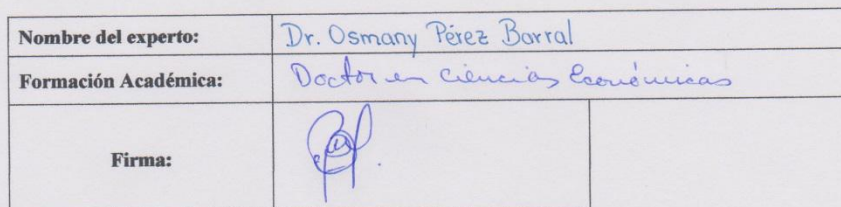 Nombre del experto: Dr. Osmany Pérez Barral
Formación Académica: Doctor en Ciencias Económicas
Firma: